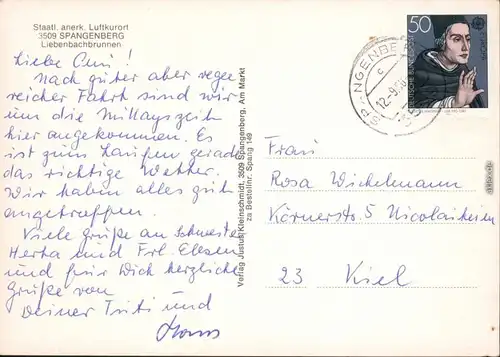 Staatl. anerk. Luftkurort
3509 SPANGENBERG
Liebenbachbrunnen
Liebe Omi!
Nach guter aber regen
reicher Fahrt sind wir
um die Mittagszeit
hier angekommen. Es
ist zum Laufen gerade
das richtige Wetter.
Wir haben alles gut
angetroffen.
Viele Grüße an Schwester
Herta und Frl. Elesen
und für Dich herzliche
Grüße von
Deiner Tuti und
Hans
Verlag Justus Kleinschmidt, 3509 Spangenberg, Am Markt
zu Bestellnr. Spang 149
50
DEUTSCHE BUNDESPOST
SPANGENBE
12.-9.80
Frau
Rosa Wichelmann
Körnerstr. 5 Nicolaiheim
23 Kiel